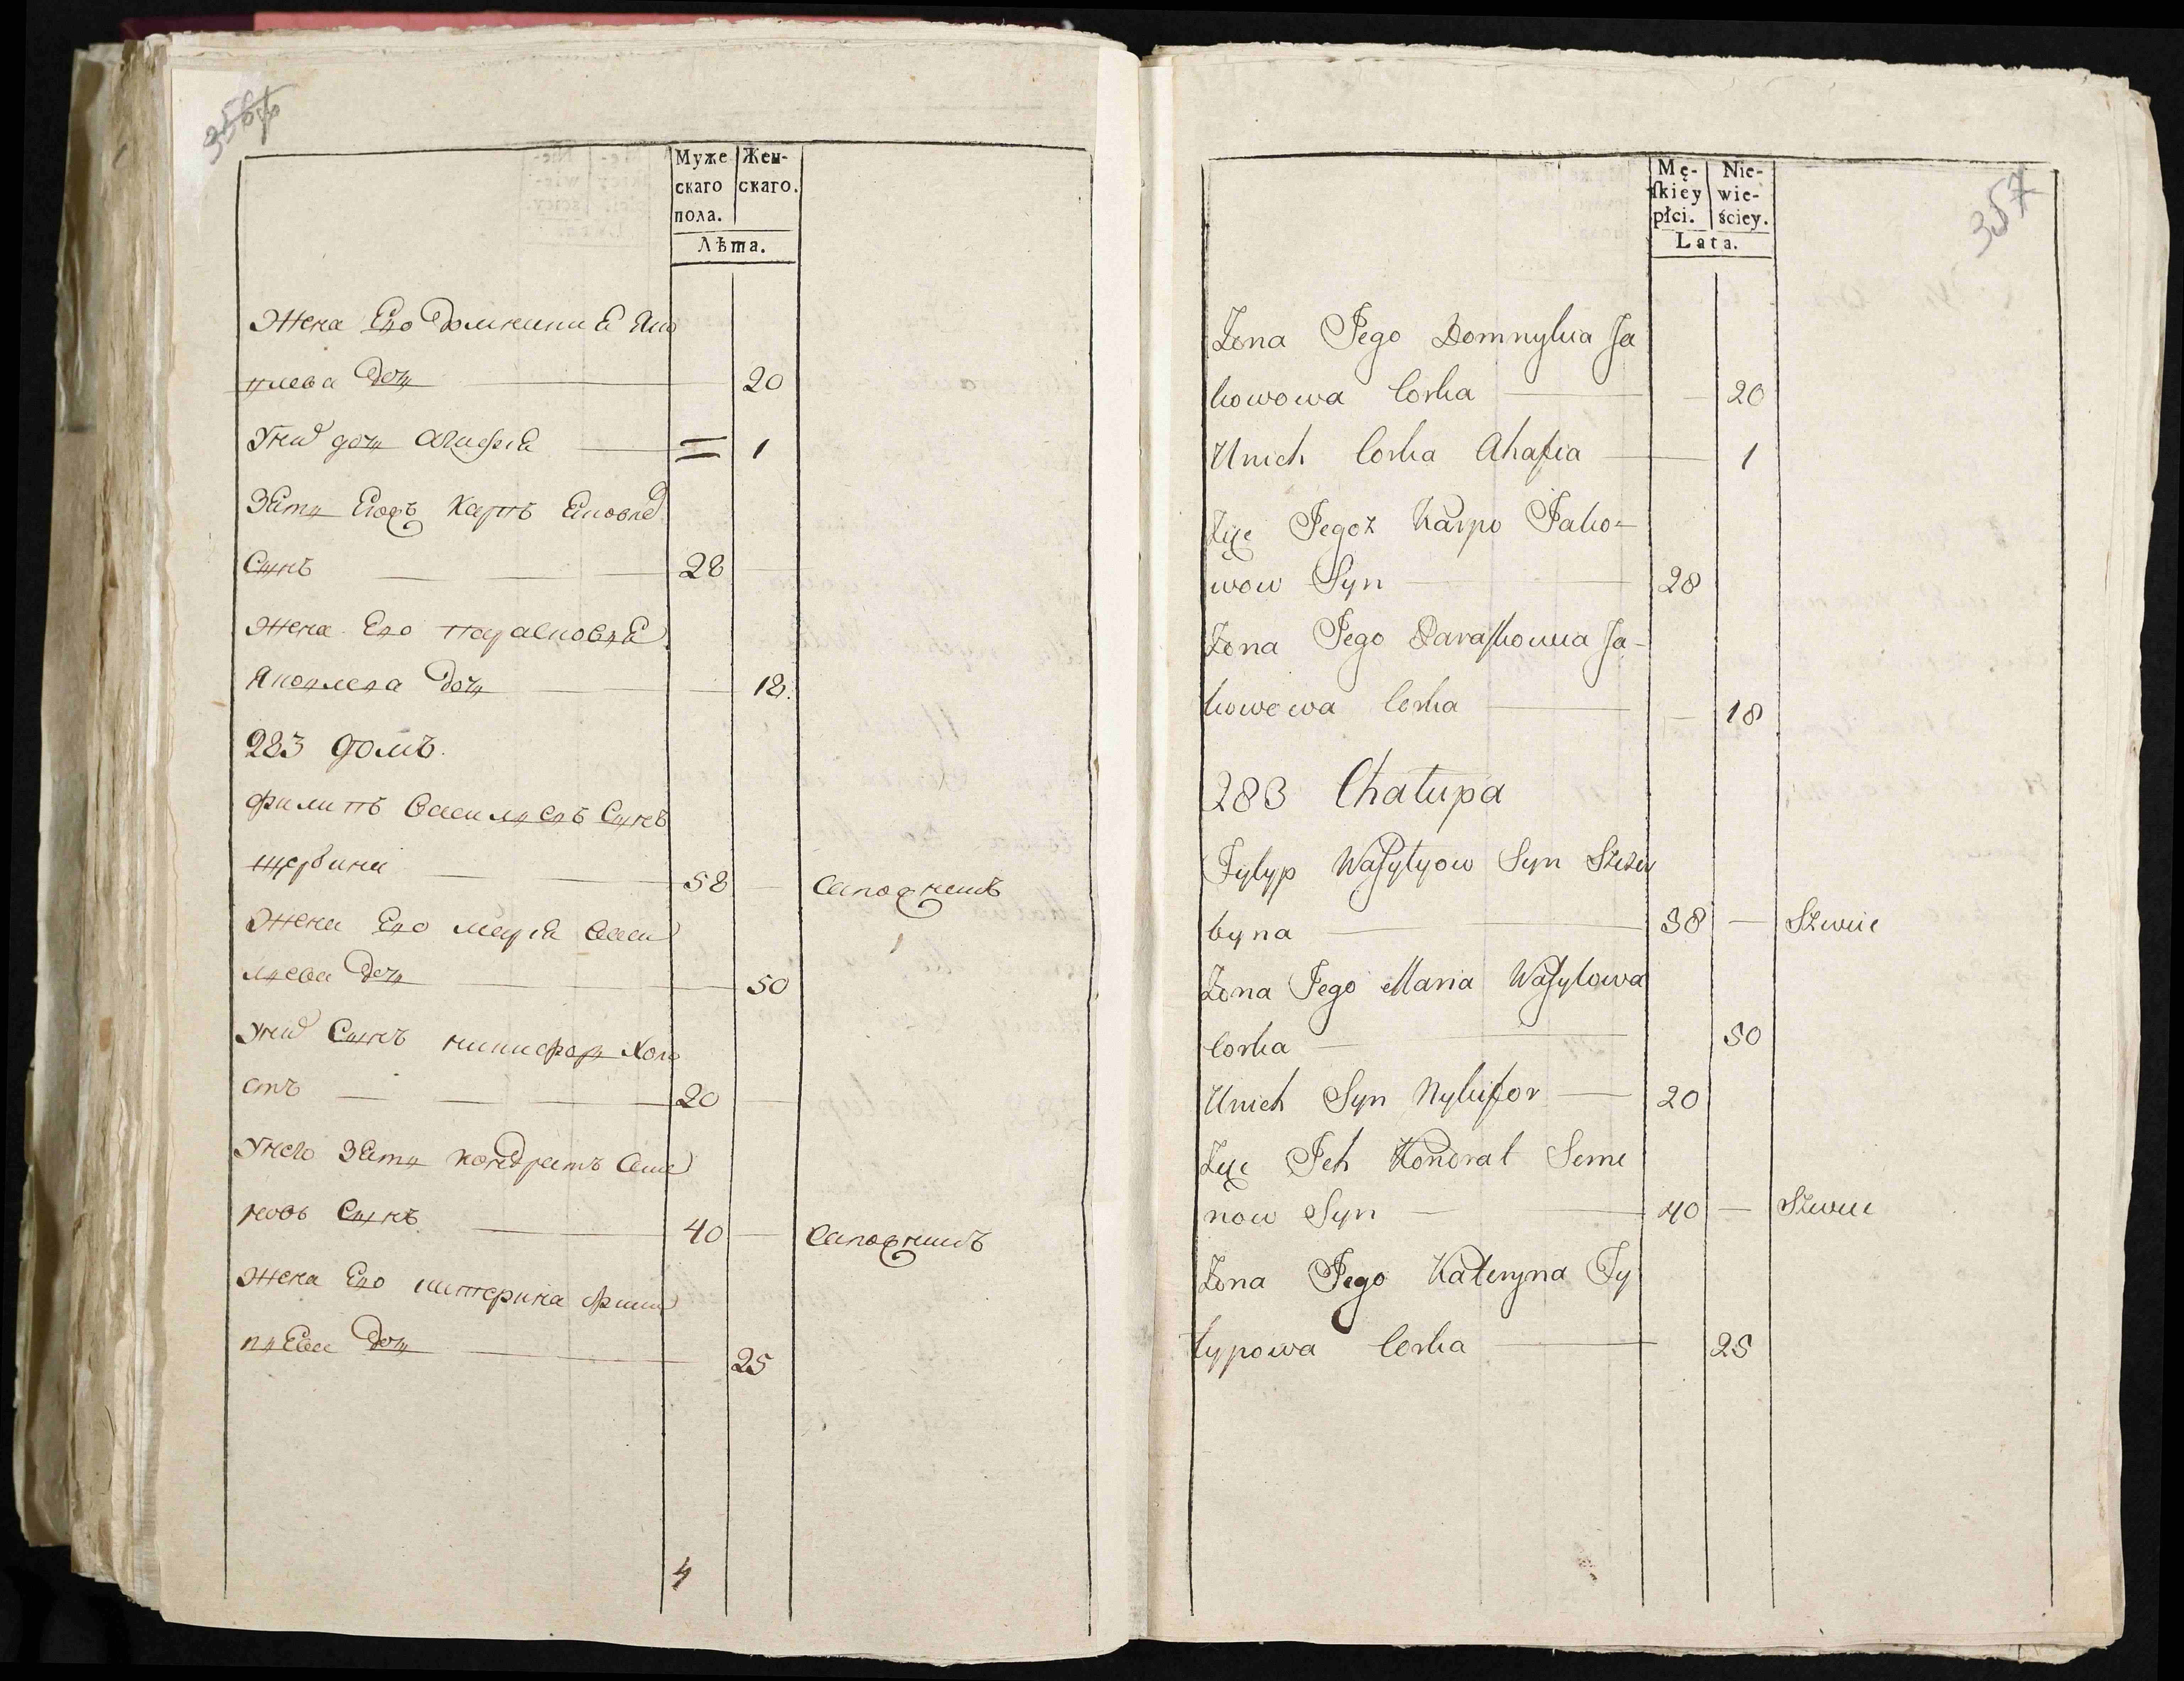 Муже
скаго
пола.
Жен-
скаго.
Лѣта.
Жена Его Домникия Яко
влева Дочь 20
Уних дочь Агафія 1
Зять Егожъ Карпъ Яковле
Сынъ 28
Жена Его Парасковія
Яковлева Дочь 18.
283 домъ.
Филипъ Васильевъ Сынъ
Щербина 58 Сапожникъ
Жена Его Марія Васи
льева Дочь 50
Уних Сынъ Никифоръ Холо
стъ 20
Унего Зять Кондратъ Семе
новъ Сынъ 40 Сапожникъ
Жена Его Катерина Фили
пьева Дочь 25
4
357
Mę-
ſkiey
płci.
Nie-
wie-
ściey.
Lata.
Zona Jego Domnykia Ja
kowowa Corka 20
Unich Corka Ahafia 1
Zięc Jegoż Karpo Jako-
wow Syn 28
Zona Jego Paraſkowia Ja-
kowowa Corka 18
283 Chałupa
Fylyp Waſylyow Syn Szczer
byna 38 Szewic
Zona Jego Maria Waſylowa
Corka 50
Unich Syn Nykifor 20
Zięc Jch Kondrat Seme
now Syn 40 Szewic
Zona Jego Kateryna Fy
lypowa Corka 25